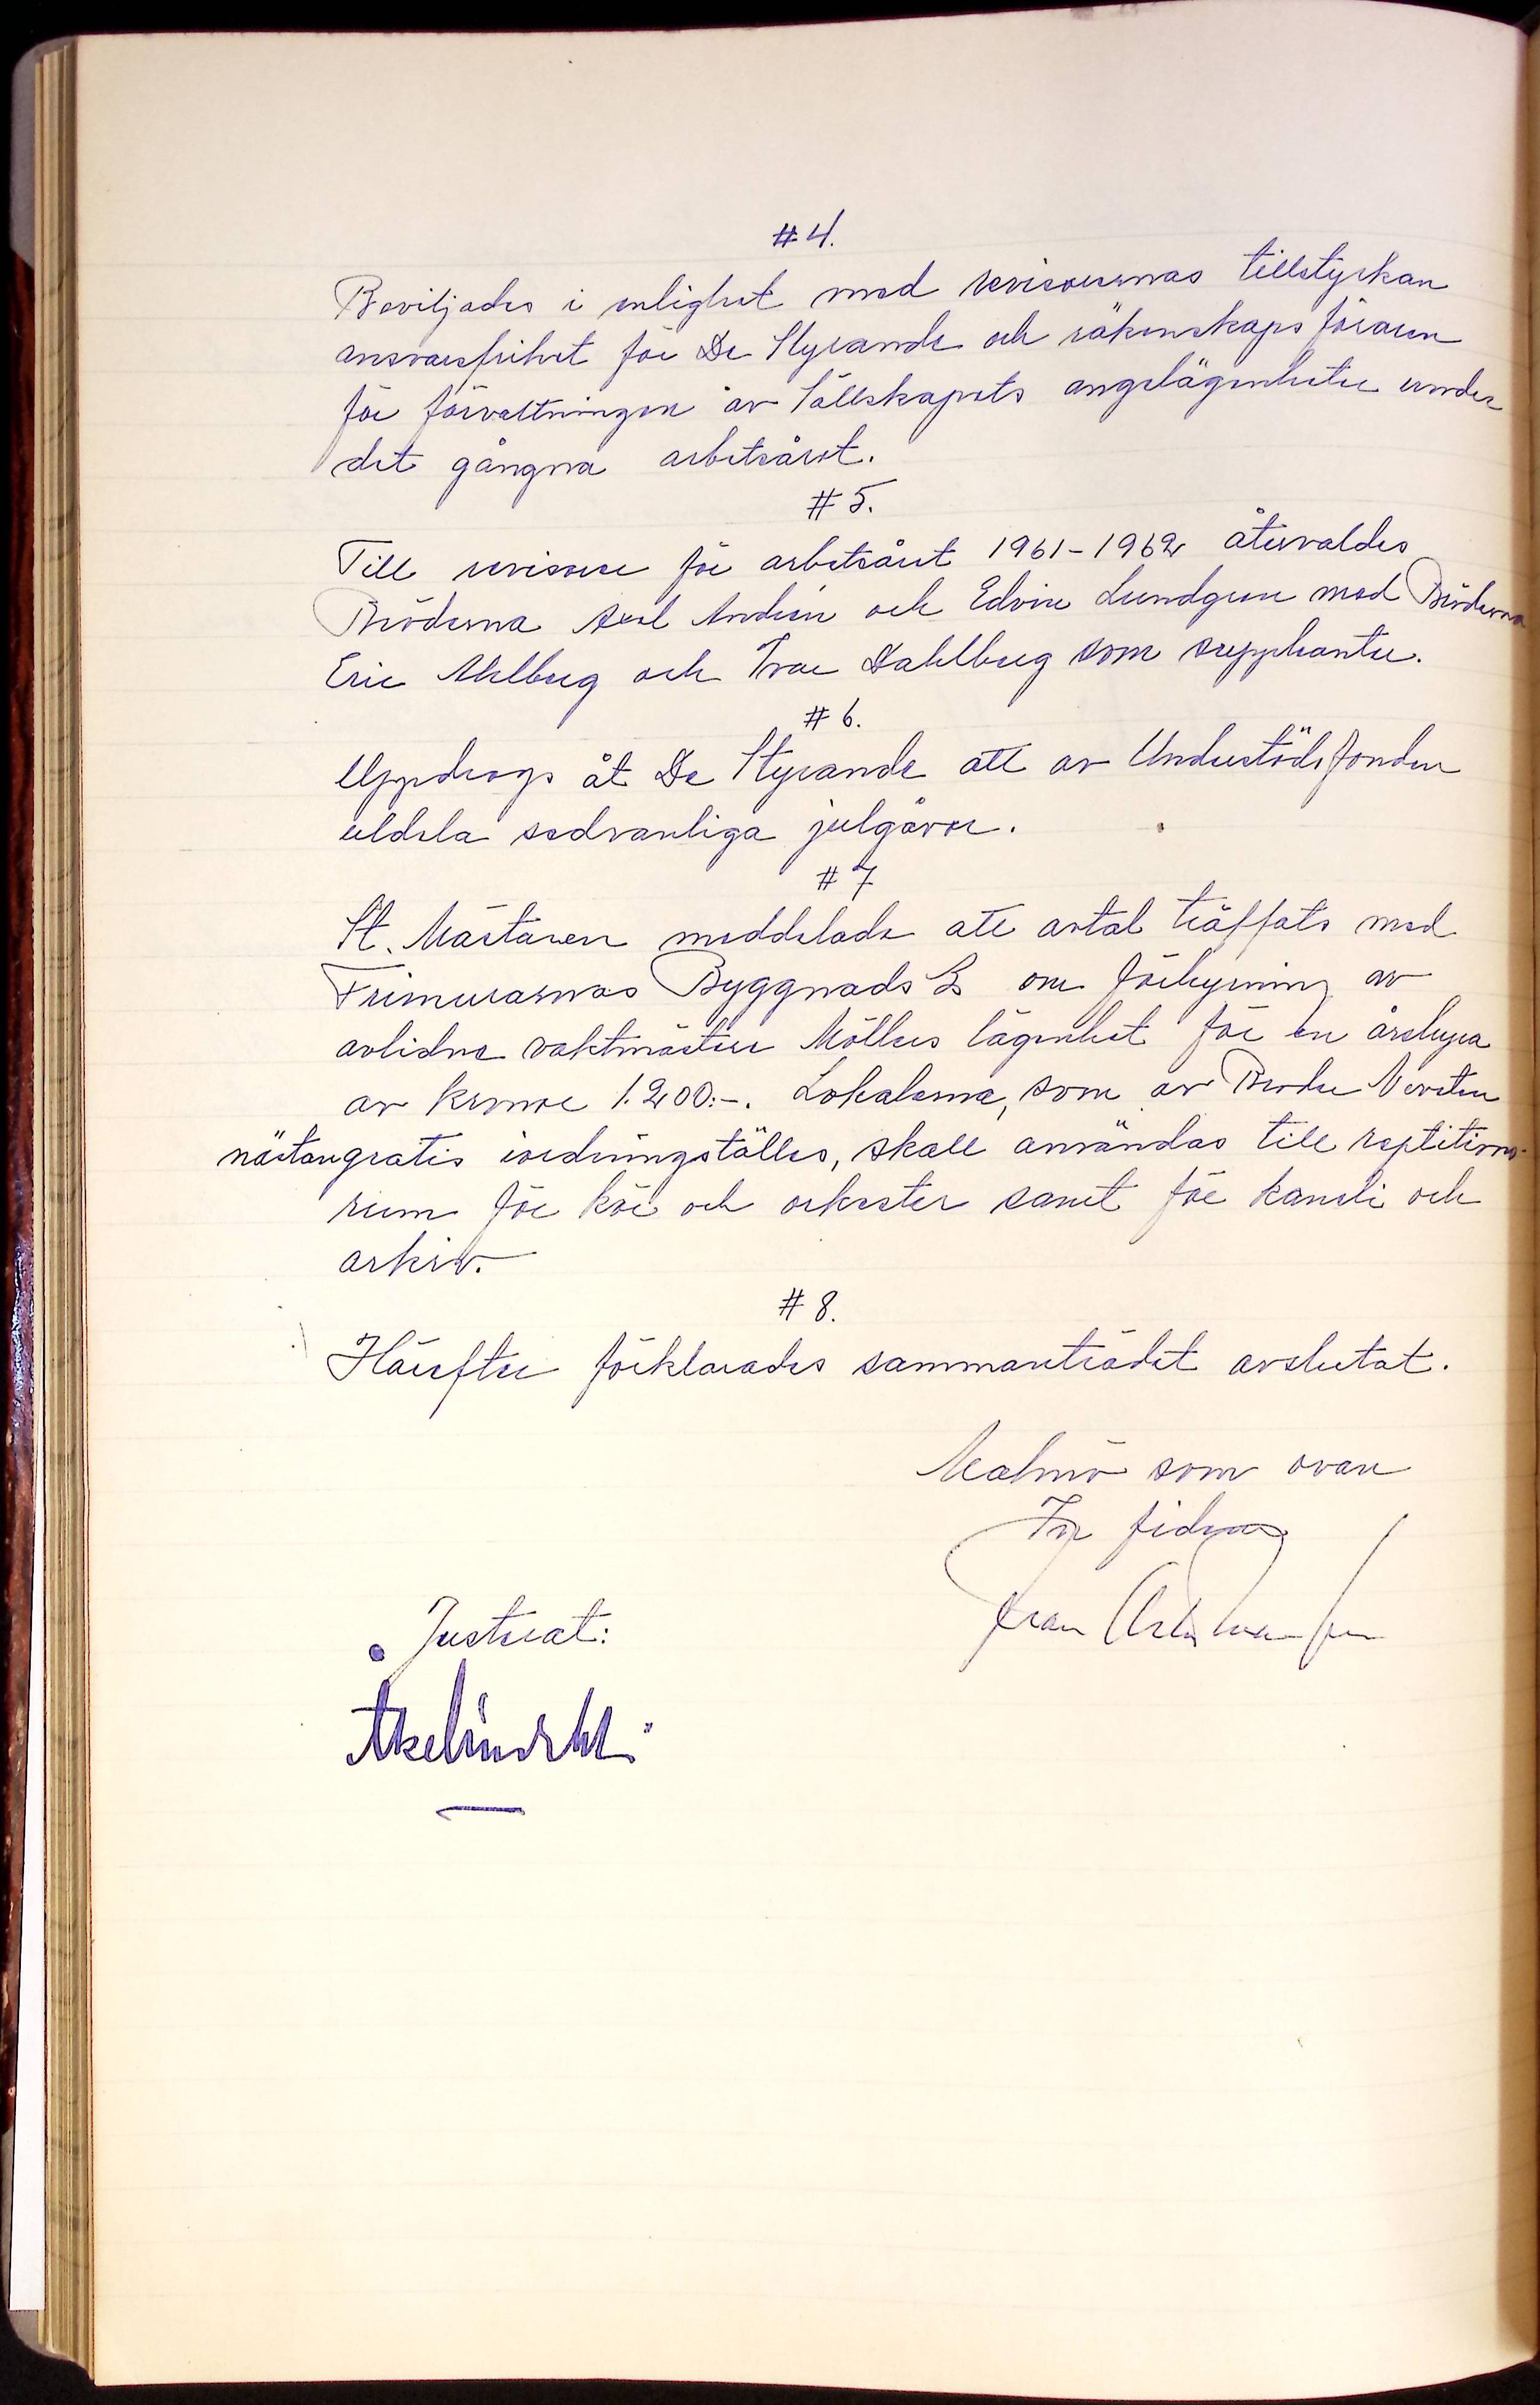 # 4.
Beviljades i enlighet med revisorernas tillstyrkan
ansvarsfrihet för De Styrande och räkenskapsföraren
för förvaltningen av Sällskapets angelägenheter under
det gångna arbetsåret.
# 5.
Till revisorer för arbetsåret 1961-1962 återvaldes
Bröderna Axel Andrén och Edvin Lundgren med Bröderna
Eric Ahlberg och Ivar Dahlberg som suppleanter.
# 6.
Uppdrogs åt De Styrande att av Understödsfonden
utdela sedvanliga julgåvor.
# 7
St. Mästaren meddelade att avtal träffats med
Frimurarnas Byggnads om förhyrning av
avlidne vaktmäster Möllers lägenhet för en årshyra
av kronor 1.200:-. Lokalerna, som av Broder
nästan gratis iordningställes, skall användas till repetitions-
rum för kör och orkester samt för kansli och
arkiv.
# 8.
Härefter förklarades sammanträdet avslutat.
Malmö som ovan
In fidem
Justerat: